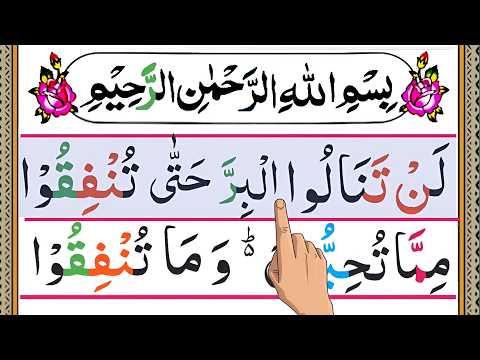 بِسْمِ اللهِ الرَّحْمٰنِ الرَّحِيْمِ
لَنْ تَنَالُوا الْبِرَّ حَتّٰى تُنْفِقُوْا
مِمَّا تُحِبُّوْنَ ؕ وَمَا تُنْفِقُوْا